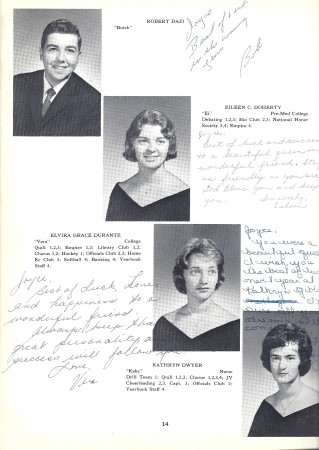 ROBERT DAZI
"Butch"
Joyce
Best of luck
in the coming
years
Bob
EILEEN C. DOHERTY
"Ei" Pre-Med College
Debating 1,2,3; Bio Club 2,3; National Honor
Society 3,4; Empire 4.
Joyce,
Best of luck and success
to a beautiful queen and
wonderful friend. Stay
as friendly as you are
God bless you and keep
you.
Sincerely,
Eileen
ELVIRA GRACE DURANTE
"Vera" College
Quill 1,2,3; Empire 1,2; Library Club 1,2;
Chorus 1,2; Hockey 1; Officials Club 2,3; Home
Ec Club 3; Softball 4; Banking 4; Yearbook
Staff 4.
Joyce,
Best of luck, love
and happiness to a
wonderful friend.
Always keep that
great personality and
success will follow you
Love,
Vera
Joyce,
You were a
beautiful queen
I wish you
the best of luck
KATHRYN DWYER
"Kaky" Nurse
Drill Team 1; Quill 1,2,3; Chorus 1,2,3,4; JV
Cheerleading 2,3, Capt. 3; Officials Club 3;
Yearbook Staff 4.
14